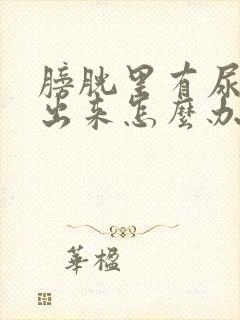 膀胱里有尿
出来怎麽办
華楹